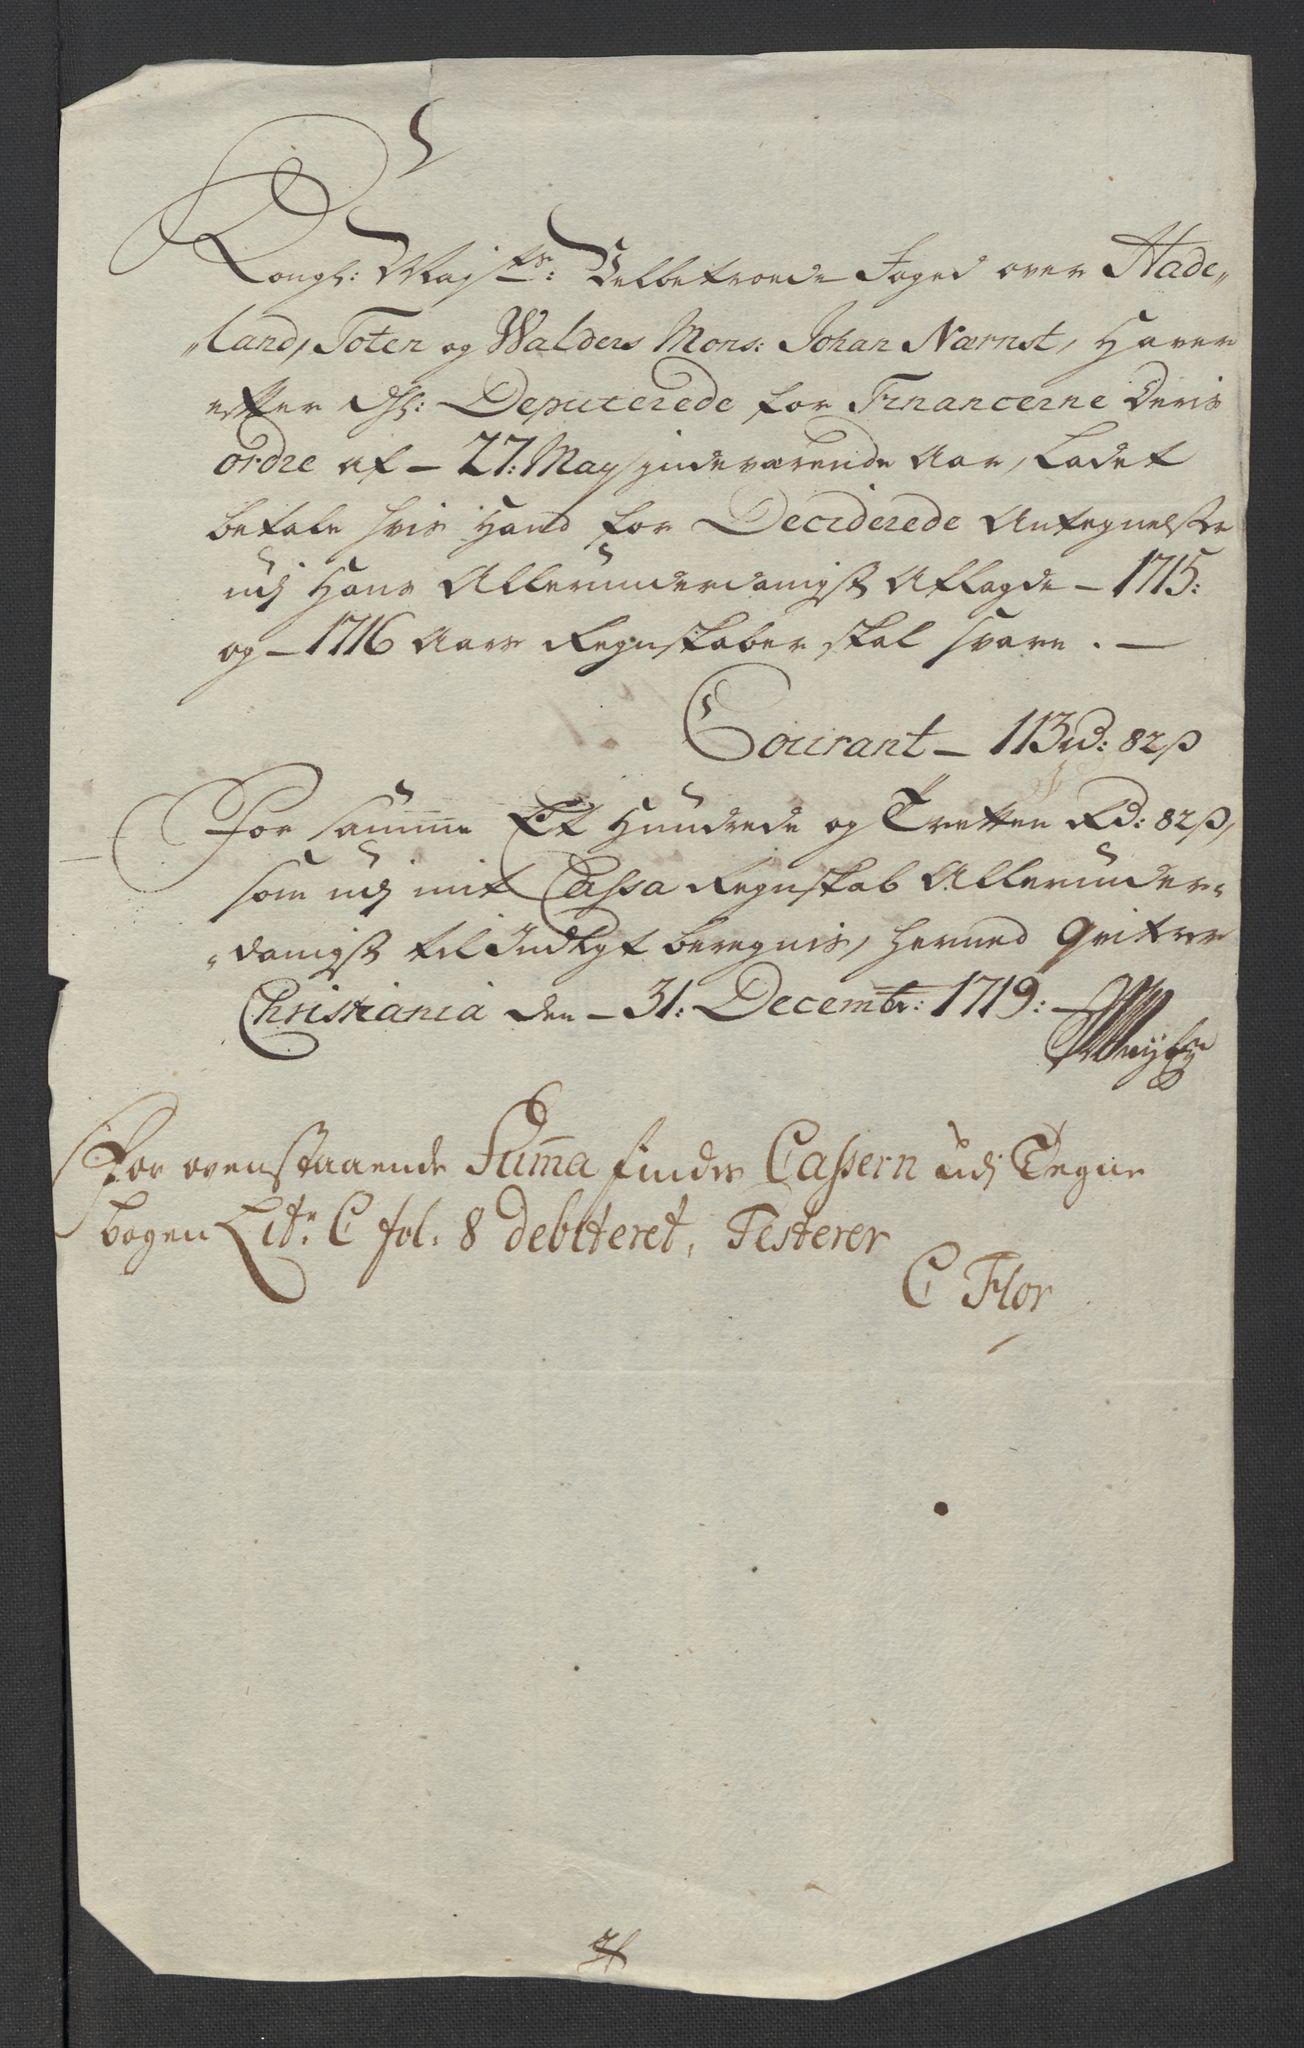 Kongl: Maj.ts: Velbetroede Foged over Hade„
„land, Toten og Walders Mons: Johan Nærnst, Haver
efter Dhl: Deputerede for Financerne Deris
Ordre af – 27: May indeværende Aar, Ladet
betale hvis Hand for Deciderede Antegnelser
udj Hans Allerunderdanigst Aflagde – 1715:
og – 1716 Aars Regnskaber skal svare. —
Courant – 113 rd: 82 ß
For samme Et Hundrede og Tretten Rd: 82 ß,
som udj mit Cassa Regnskab Allerunder„
„danigst til Indtegt beregnis, hermed Qviterer
Christiania den – 31: Decembr: 1719: —
For ovenstaaende Summa findes Cassern udj Tegne
bogen Litr. C fol. 8 debiteret, Testerer
C Flor